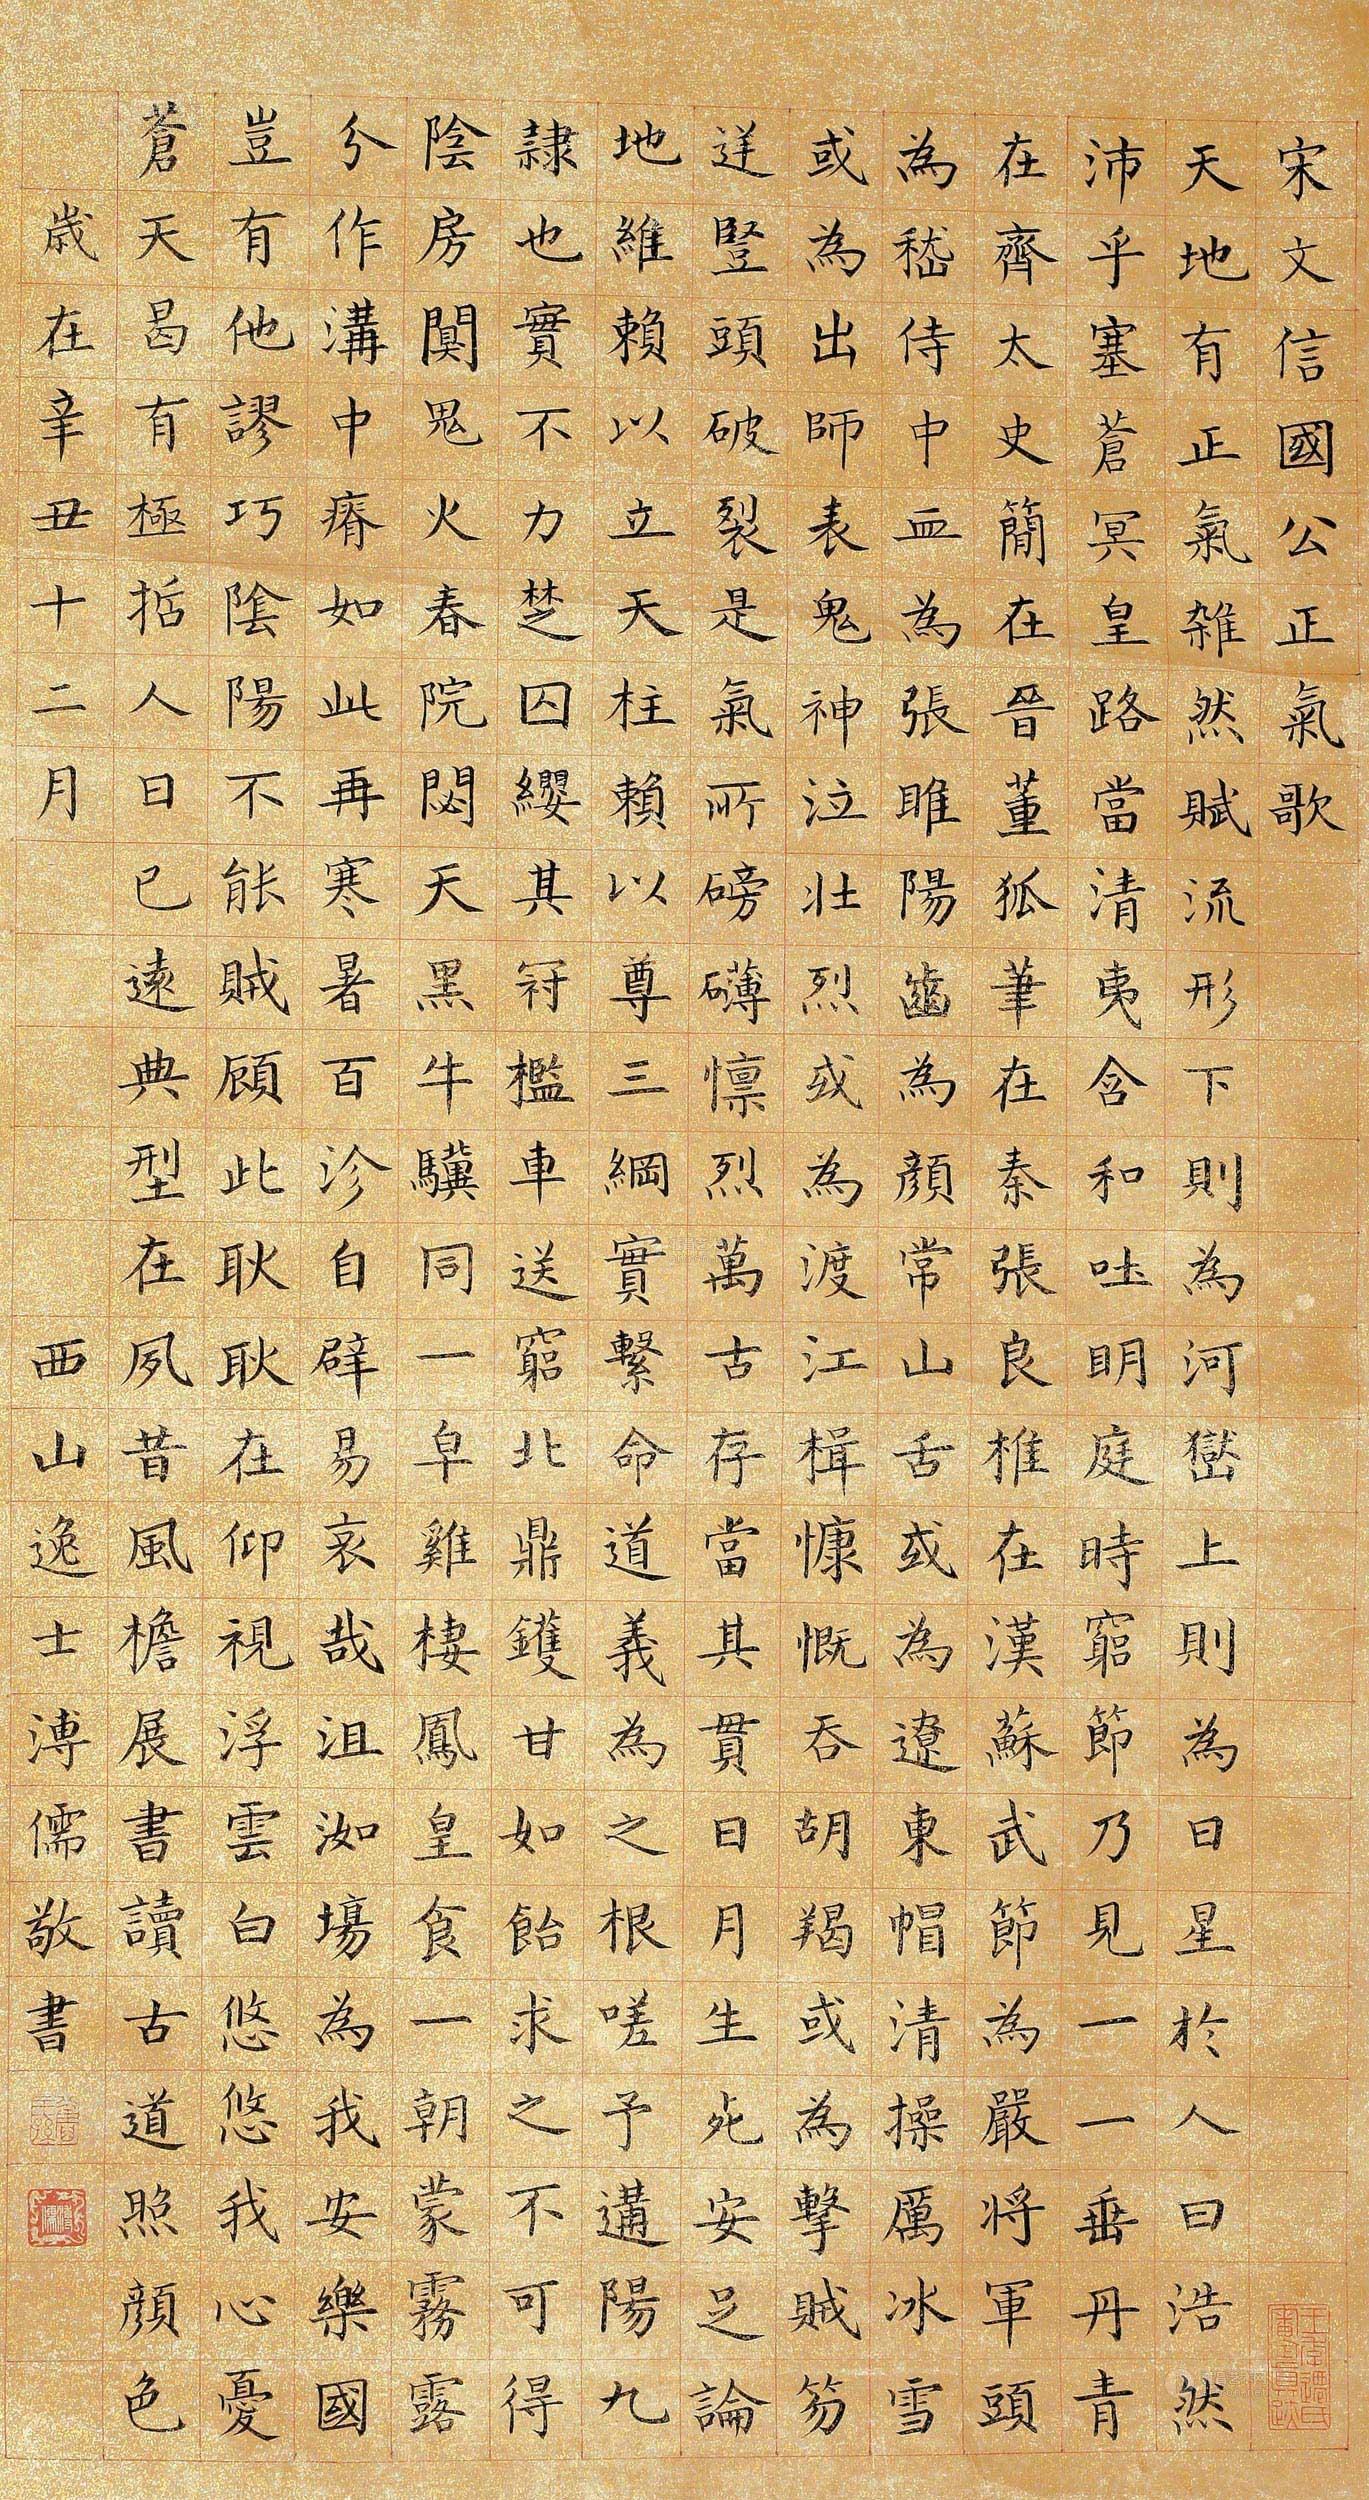 宋文信國公正氣歌
天地有正氣雜然賦流形下則為河嶽上則為日星於人曰浩然
沛乎塞蒼冥皇路當清夷含和吐明庭時窮節乃見一一垂丹青
在齊太史簡在晉董狐筆在秦張良椎在漢蘇武節為嚴將軍頭
為嵇侍中血為張睢陽齒為顏常山舌或為遼東帽清操厲冰雪
或為出師表鬼神泣壯烈或為渡江楫慷慨吞胡羯或為擊賊笏
逆豎頭破裂是氣所磅礴懍烈萬古存當其貫日月生死安足論
地維賴以立天柱賴以尊三綱實繫命道義為之根嗟予遘陽九
隷也實不力楚囚纓其冠檻車送窮北鼎鑊甘如飴求之不可得
陰房闃鬼火春院閟天黑牛驥同一皁雞棲鳳皇食一朝蒙霧露
分作溝中瘠如此再寒暑百沴自辟易哀哉沮洳場為我安樂國
豈有他謬巧陰陽不能賊顧此耿耿在仰視浮雲白悠悠我心憂
蒼天曷有極哲人日已遠典型在夙昔風檐展書讀古道照顏色
歲在辛丑十二月 西山逸士溥儒敬書